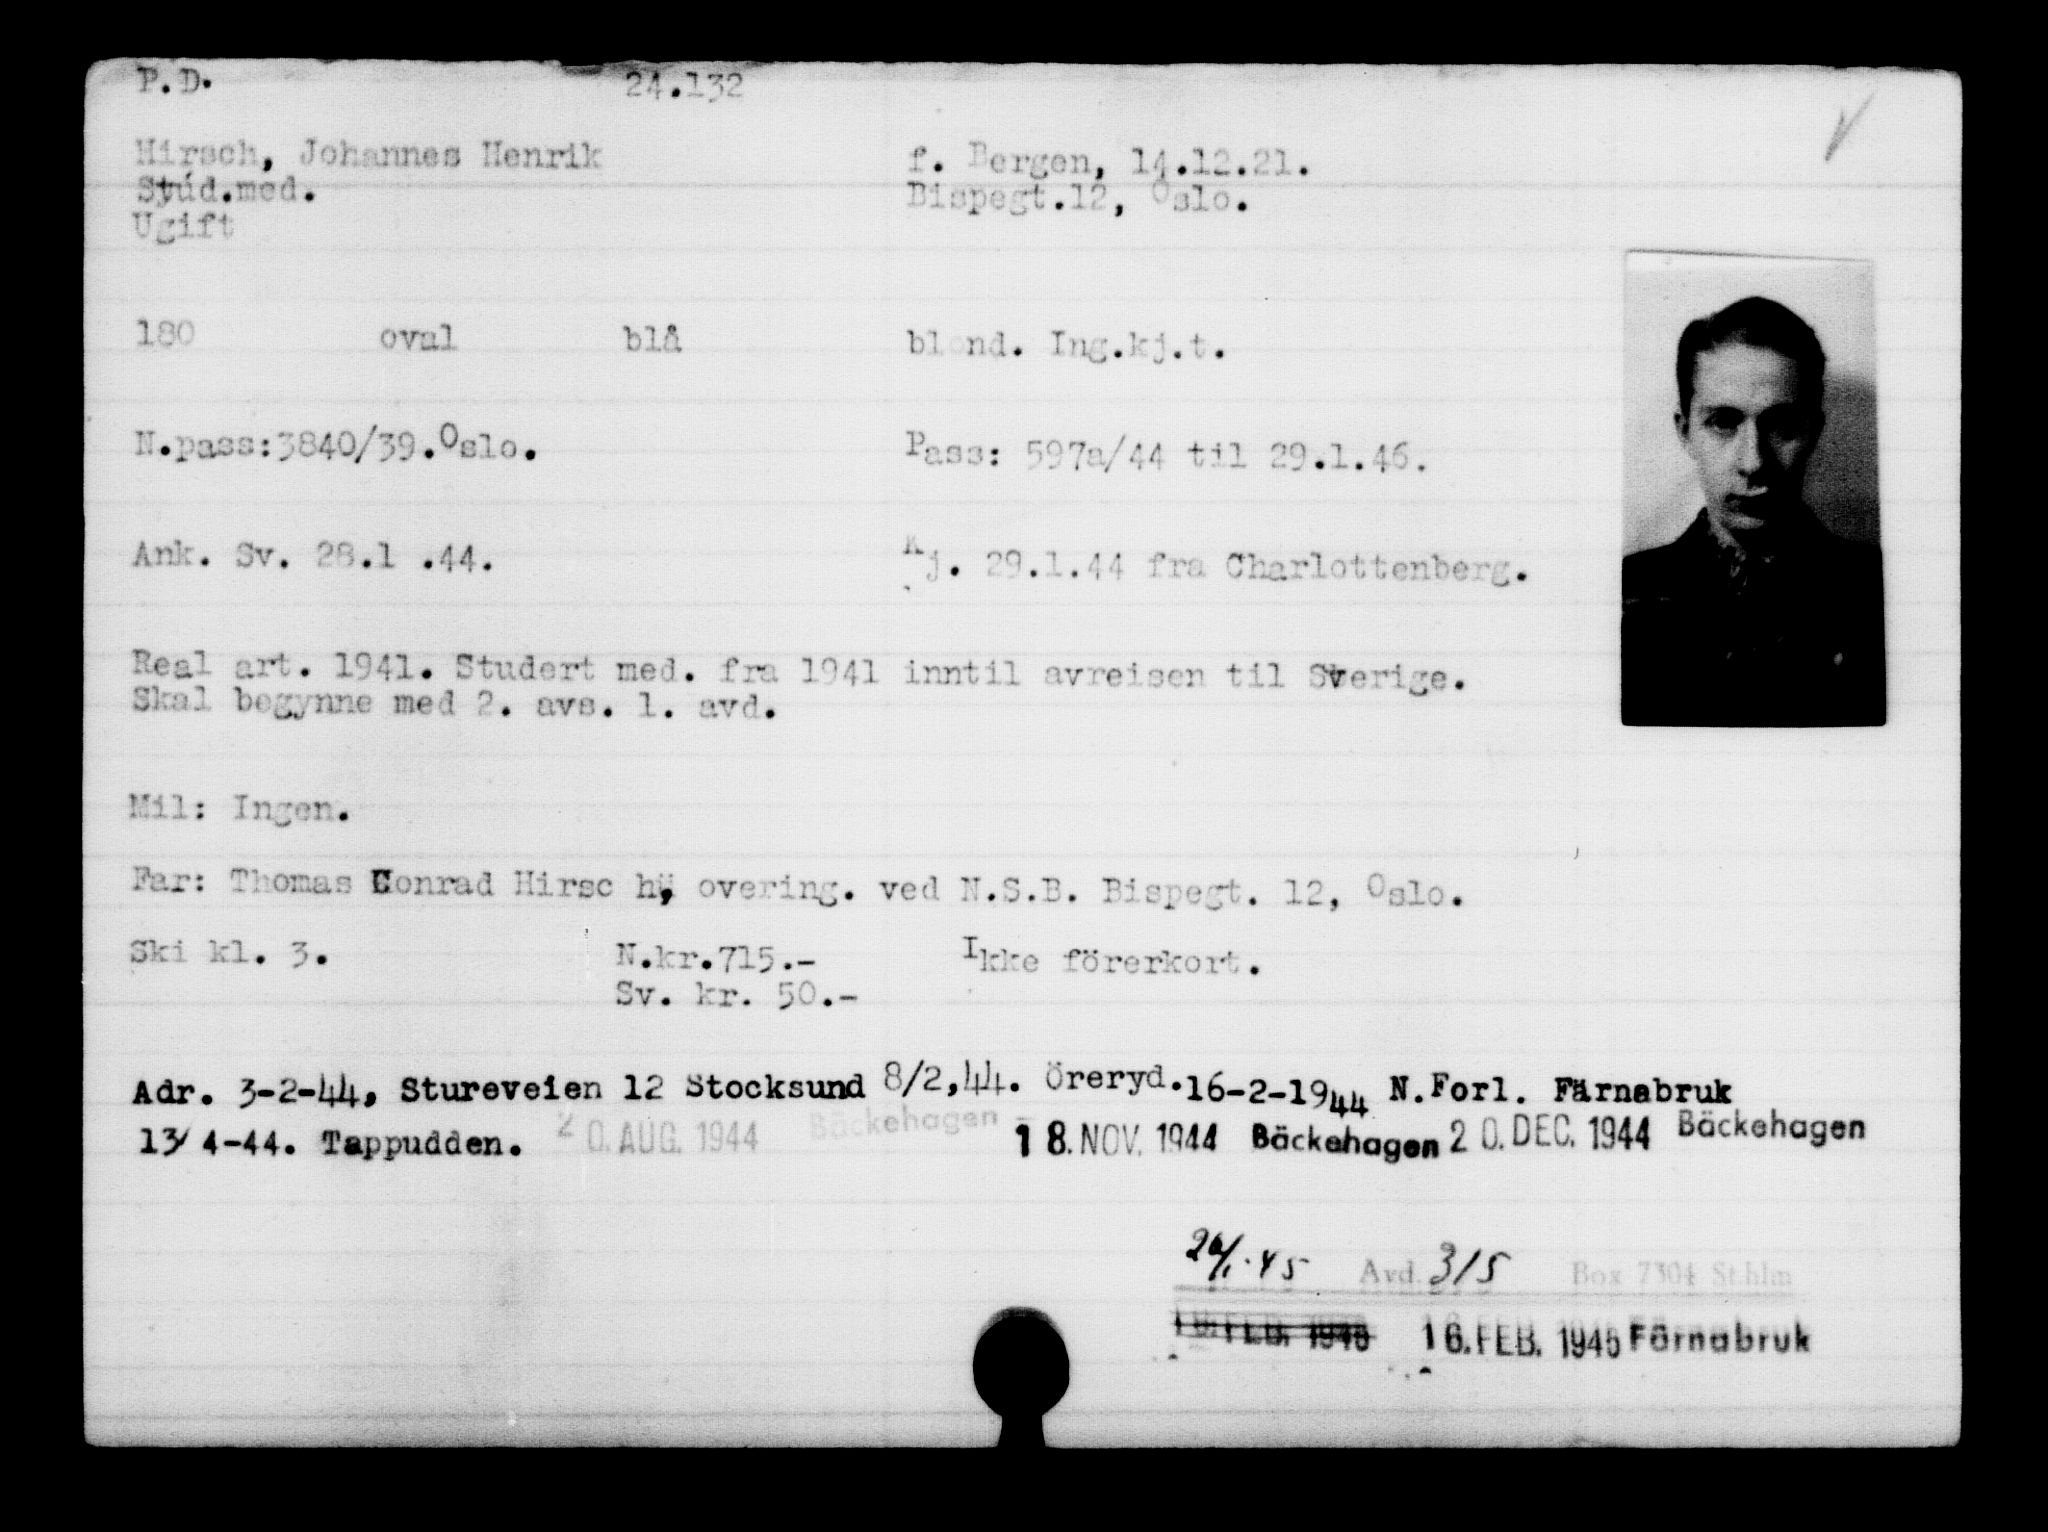 P.D. 24.132
Hirsch, Johannes Henrik f. Bergen, 14.12.21.
Stud.med. Bispegt.12, Oslo.
Ugift
180 oval blå blond. Ing.kj.t.
N.pass:3840/39.Oslo. Pass: 597a/44 til 29.1.46.
Ank. Sv. 28.1 .44. Kj. 29.1.44 fra Charlottenberg.
Real art. 1941. Studert med. fra 1941 inntil avreisen til Sverige.
Skal begynne med 2. avs. 1. avd.
Mil: Ingen.
Far: Thomas Conrad Hirsc h, overing. ved N.S.B. Bispegt. 12, Oslo.
Ski kl. 3. N.kr.715.- Ikke förerkort.
Sv. kr. 50.-
Adr. 3-2-44, Stureveien 12 Stocksund 8/2,44. Öreryd.16-2-1944 N.Forl. Färnabruk
13/4-44. Tappudden. 20. AUG. 1944 Bäckehagen - 18. NOV. 1944 Bäckehagen 20. DEC. 1944 Bäckehagen
26/1.45 Avd. 315 Box 7304 St.hlm
16. FEB. 1945 16. FEB. 1945 Färnabruk